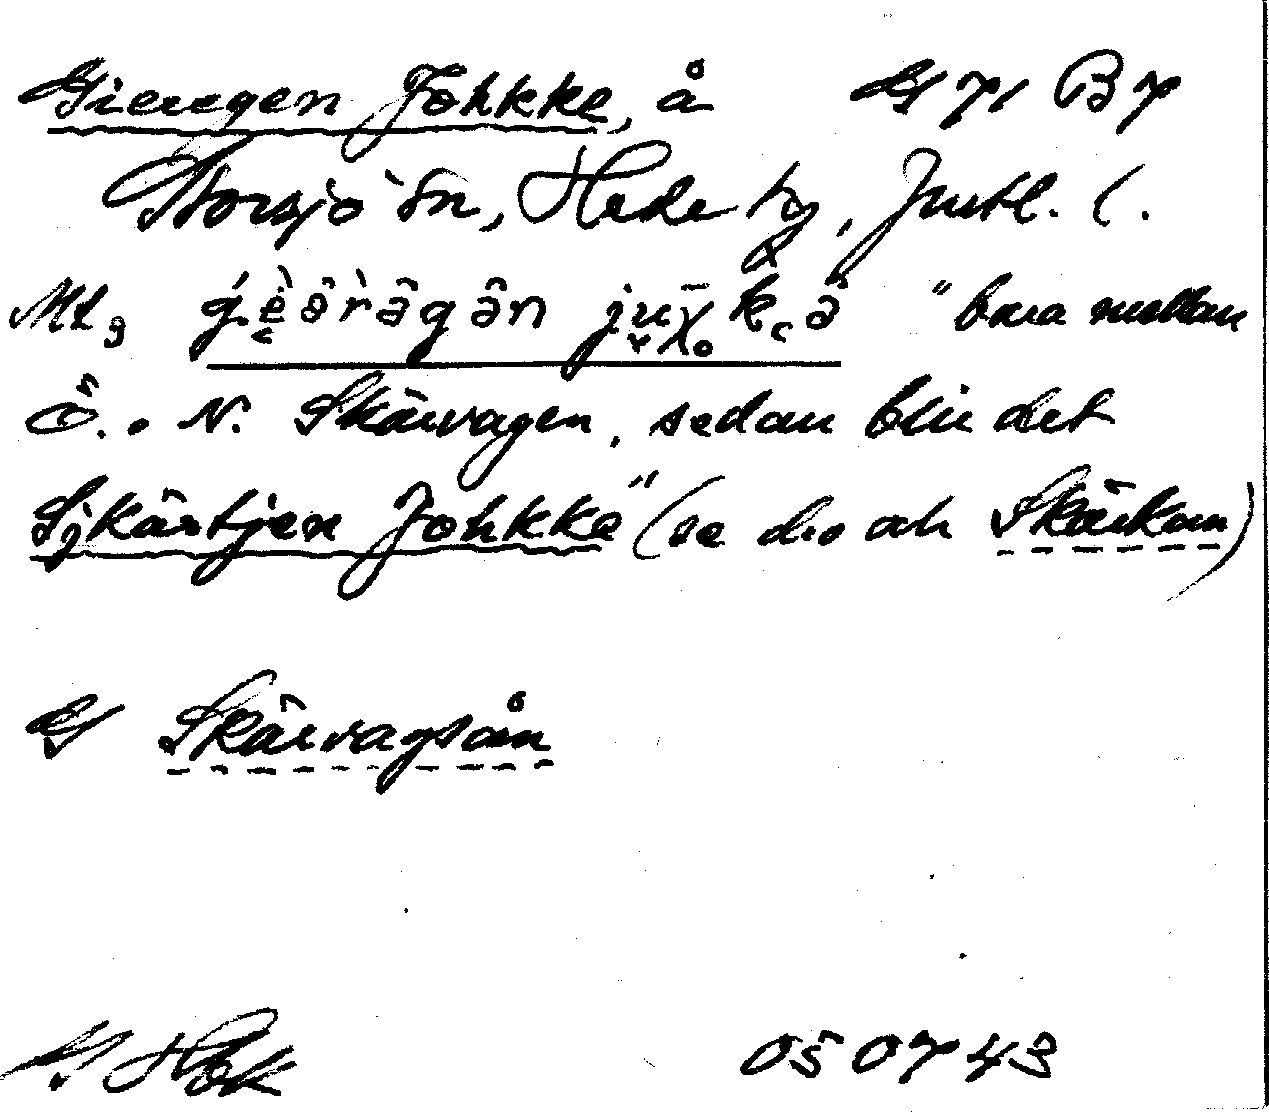 Gieregen Johkke, å G 71 B 7
Storsjö sn, Hede tg, Jmtl. l.
"bara mellan
Ö. o N. Skärvagen, sedan blir det
Sjkärtjen Johkke" (se dro ak Skärkan)
G Skärvagsån
G Hbk 050743